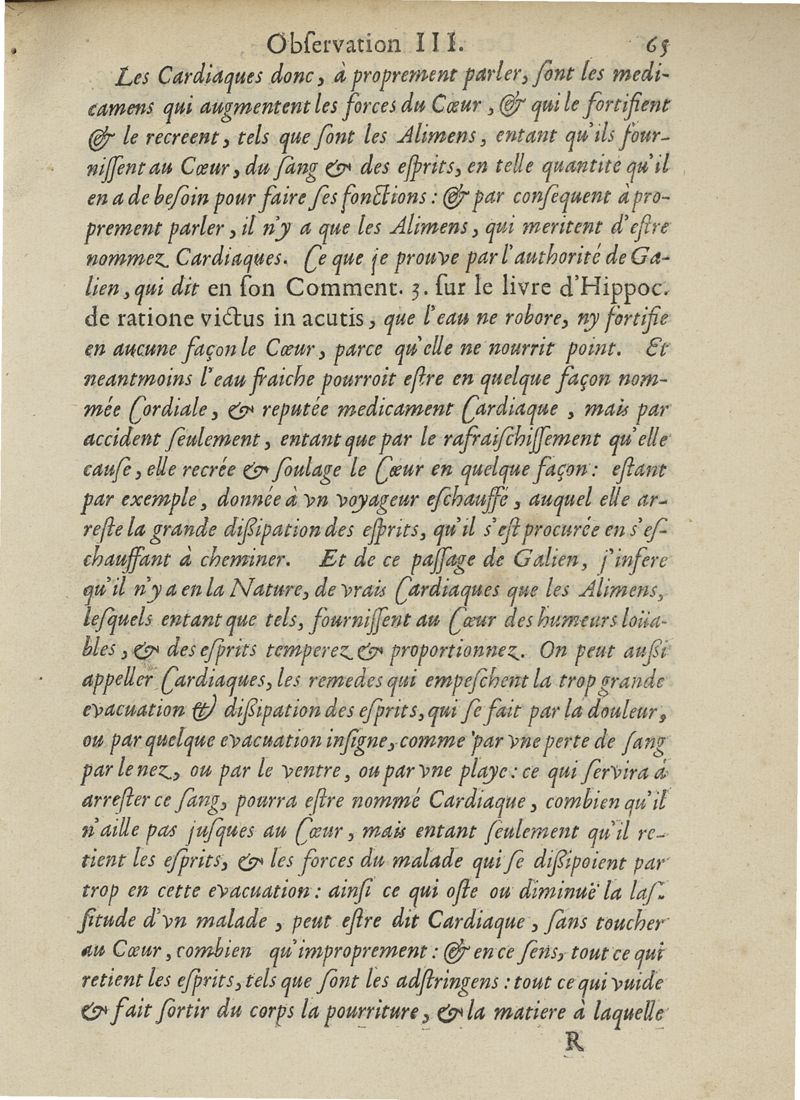 Obſervation III. 65
Les Cardiaques donc, à proprement parler, ſont les medi-
camens qui augmentent les forces du Cœur, & qui le fortifient
& le recreent, tels que ſont les Alimens, entant qu'ils four-
niſſent au Cœur, du ſang & des eſprits, en telle quantité qu'il
en a de beſoin pour faire ſes fonctions: & par conſequent à pro-
prement parler, il n'y a que les Alimens, qui meritent d'eſtre
nommez Cardiaques. Ce que je prouve par l'authorité de Ga-
lien, qui dit en ſon Comment. 3. ſur le livre d'Hippoc.
de ratione victus in acutis, que l'eau ne robore, ny fortifie
en aucune façon le Cœur, parce qu'elle ne nourrit point. Et
neantmoins l'eau fraiche pourroit eſtre en quelque façon nom-
mée Cordiale, & reputée medicament Cardiaque, mais par
accident ſeulement, entant que par le rafraiſchiſſement qu'elle
cauſe, elle recrée & ſoulage le Cœur en quelque façon: eſtant
par exemple, donnée à vn voyageur eſchauffé, auquel elle ar-
reſte la grande diſſipation des eſprits, qu'il s'eſt procurée en s'eſ-
chauffant à cheminer. Et de ce paſſage de Galien, j'infere
qu'il n'y a en la Nature, de vrais Cardiaques que les Alimens,
leſquels entant que tels, fourniſſent au Cœur des humeurs loüa-
bles, & des eſprits temperez & proportionnez. On peut auſſi
appeller Cardiaques, les remedes qui empeſchent la trop grande
evacuation & diſſipation des eſprits, qui ſe fait par la douleur,
ou par quelque evacuation inſigne, comme par vne perte de ſang
par le nez, ou par le ventre, ou par vne playe: ce qui ſervira à
arreſter ce ſang, pourra eſtre nommé Cardiaque, combien qu'il
n'aille pas juſques au Cœur, mais entant ſeulement qu'il re-
tient les eſprits, & les forces du malade qui ſe diſſipoient par
trop en cette evacuation: ainſi ce qui oſte ou diminuë la laſ-
ſitude d'vn malade, peut eſtre dit Cardiaque, ſans toucher
au Cœur, combien qu'improprement: & en ce ſens, tout ce qui
retient les eſprits, tels que ſont les adſtringens: tout ce qui vuide
& fait ſortir du corps la pourriture, & la matiere à laquelle
R